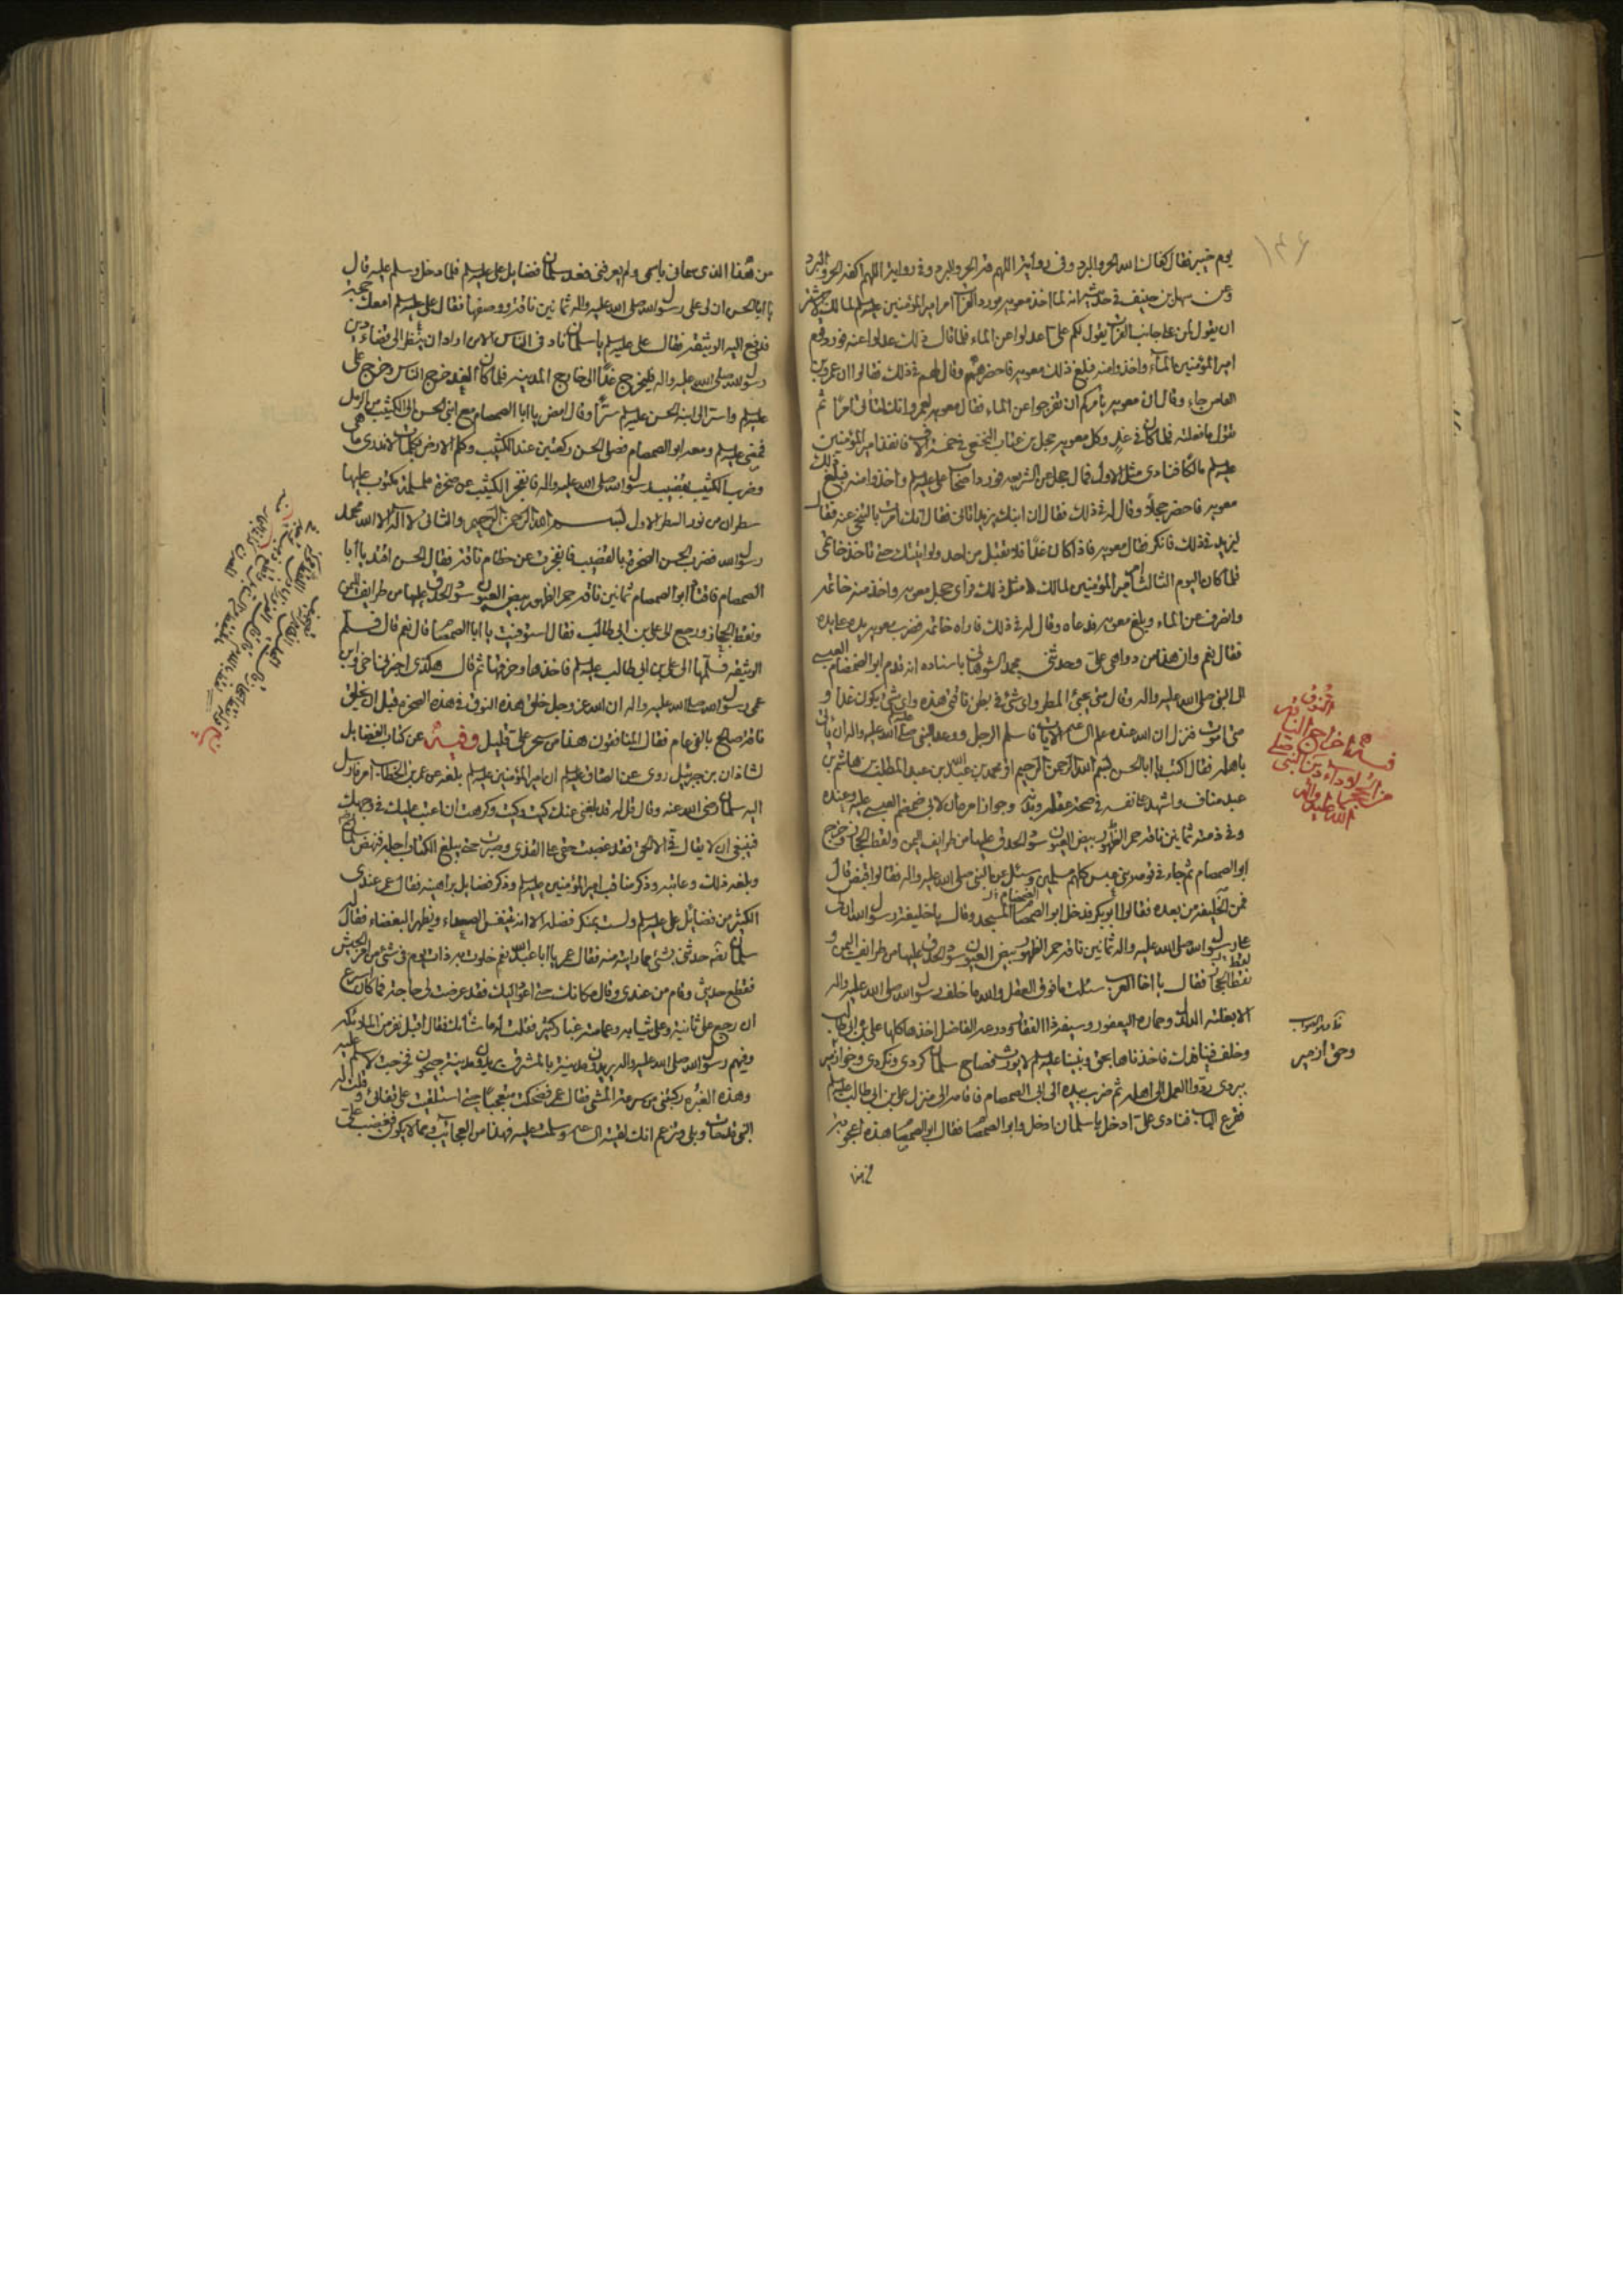 ١٤٦
يوم خيبر فقال كفاك الله الحر والبرد وفى رواية اللهم قه الحر والبرد وفى رواية اللهم اكفه الحر والبرد
وعن سهل بن حنيف فى حديثه انه لما اخذ معويه مورد الفرات امر امير المؤمنين عليه السلم لمالك الاشتر
ان يقول لمن على جانب الفرات يقول لكم على اعدلوا عن الماء فلما قال ذلك عدلوا عنه فورد قوم
امير المؤمنين الماء واخذوا منه فبلغ ذلك معويه فاحضرهم وقال لهم فى ذلك فقالوا ان عمرو بن
العاص جاء وقال ان معويه يأمركم ان تفرجوا عن الماء فقال معويه لعمرو انك لتأتى امرا ثم
تقول ما فعلته فلما كان فى غد وكل معويه حجل بن عتاب النخعى فى خمسة الاف فانفذ امير المؤمنين
عليه السلم مالكا فنادى مثل الاول فمال حجل عن الشريعة فورد اصحاب على عليه السلم واخذوا منه فبلغ ذلك
معويه فاحضر حجلا وقال له فى ذلك فقال ان ابنك يزيد اتانى فقال انك امرت بالتنحى عنه فقال
ليزيد فى ذلك فانكر فقال معويه فاذا كان غدا فلا تقبل من احد ولو اتيتك حتى تاخذ خاتمى
فلما كان اليوم الثالث امر امير المؤمنين لمالك مثل ذلك فراى حجل معويه واخذ منه خاتمه
وانصرف عن الماء وبلغ معويه فدعاه وقال له فى ذلك فاراه خاتمه فضرب معويه يده على يده
فقال نعم وان هذا من دواهى على وحدثنى محمد الشوهانى باسناده انه قدم ابو الصمصام العبسى
الى النبى صلى الله عليه واله وقال متى يجئ المطر واى شئ فى بطن ناقتى هذه واى شئ يكون غدا و
متى اموت فنزل ان الله عنده علم الساعة الايات فاسلم الرجل ووعد النبى صلى الله عليه واله ان ياتى
باهله فقال اكتب يا ابا الحسن بسم الله الرحمن الرحيم اقر محمد بن عبد الله بن عبد المطلب بن هاشم بن
عبد مناف واشهد على نفسه فى صحة عقله وبدنه وجواز امره ان لابى ضمضم العبسى عليه وعنده
وفى ذمته ثمانين ناقة حمر الظهور بيض العيون سود الحدق عليها من طرايف اليمن ونقط الحجاز وخرج
ابو الصمصام ثم جاء فى قومه بنى عبس كلهم مسلمين وسئل عن النبى صلى الله عليه واله فقالوا قبض قال
فمن الخليفة من بعده فقالوا ابو بكر فدخل ابو الصمصام المسجد وقال يا خليفة رسول الله ان لى
على رسول الله صلى الله عليه واله ثمانين ناقة حمر الظهور بيض العيون سود الحدق عليها من طرايف اليمن و
نقط الحجاز فقال يا اخا العرب سئلت ما فوق العقل والله ما خلف رسول الله صلى الله عليه واله
الا بغلته الدلدل وحماره اليعفور وسيفه ذا الفقار ودرعه الفاضل اخذها كلها على بن ابى طالب
وخلف فينا فدك فاخذناها بحق ونبينا عليه السلم لا يورث فصاح سلمان كردى ونكردى وحق از مير
ببردى ردوا العمل الى اهله ثم ضرب بيده الى ابى الصمصام فاقامه الى منزل على بن ابى طالب عليه السلم
فقرع الباب فنادى على ادخل يا سلمان ادخل وابو الصمصام فقال ابو الصمصام هذه اعجوبة
من هذا
النوق
وحق از مير
من هذا الذى سمانى باسمى ولم يعرفنى فعد سلمان فضايل على عليه السلم فلما دخل وسلم عليه قال
يا ابا الحسن ان لى على رسول الله صلى الله عليه واله ثمانين ناقة ووصفها فقال على عليه السلم امعك حجة
فدفع اليه الوثيقة فقال على عليه السلم يا سلمان ناد فى الناس الا من اراد ان ينظر الى قضاء دين
رسول الله صلى الله عليه واله فليخرج غدا الى خارج المدينه فلما كان الغد خرج الناس وخرج على
عليه السلم واسر الى ابنه الحسن عليه السلم سرا وقال امض يا ابا الصمصام مع ابنى الحسن الى الكثيب من الرمل
فمضى عليه السلم ومعه ابو الصمصام فصلى الحسن ركعتين عند الكثيب وكلم الارض بكلمات لا ندرى ما هى
وضرب الكثيب بقضيب رسول الله صلى الله عليه واله فانفجر الكثيب عن صخرة ململمة مكتوب عليها
سطران من نور السطر الاول بسم الله الرحمن الرحيم والثانى لا اله الا الله محمد
رسول الله فضرب الحسن الصخرة بالقضيب فانفجرت عن خطام ناقة فقال الحسن اقتد يا ابا
الصمصام فاقتاد ابو الصمصام ثمانين ناقة حمر الظهور بيض العيون سود الحدق عليها من طرايف اليمن
ونقط الحجاز ورجع الى على بن ابى طالب فقال استوفيت يا ابا الصمصام قال نعم قال فسلم
الوثيقة فسلمها الى على بن ابى طالب عليه السلم فاخذها وخرقها ثم قال هكذى اخبرنى اخى وابن
عمى رسول الله صلى الله عليه واله ان الله عز وجل خلق هذه النوق فى هذه الصخرة قبل ان يخلق
ناقة صالح بالفى عام فقال المنافقون هذا من سحر على قليل وفيه عن كتاب الفضايل
لشاذان بن جبرئيل روى عن الصادق عليه السلم ان امير المؤمنين عليه السلم بلغه عن عمر بن الخطاب امر فارسل
اليه سلمان رضى الله عنه وقال قل له قد بلغنى عنك كيت وكيت وكرهت ان اعتب عليك فى وجهك
فينبغى ان لا يقال فى الا الحق فقد غصبت حقى على القذى وصبرت حتى يبلغ الكتاب اجله فنهض سلمان
وبلغه ذلك وعاتبه وذكر مناقب امير المؤمنين عليه السلم وذكر فضايل براهينه فقال عمر عندى
الكثير من فضايل على عليه السلم ولست بمنكر فضله الا انه يتنفس الصعداء ويظهر البغضاء فقال
سلمان حدثنى بشئ مما رايته منه فقال عمر يا ابا عبد الله نعم خلوت به ذات يوم فى شئ من امر الجيش
فقطع حديثى وقام من عندى وقال مكانك حتى اعود اليك فقد عرضت لى حاجة فما كان اسرع
ان رجع على ثانية وعلى ثيابه وعمامته غبار كثير فقلت له ما شانك فقال اقبل نفر من الملائكة
وفيهم رسول الله صلى الله عليه واله يريدون مدينة بالمشرق يقال لها مدينة جيحون فخرجت لاسلم عليه
وهذه الغبرة ركبتنى من سرعة المشى فقال عمر فضحكت متعجبا حتى استلقيت على قفائى وقلت له
النبى قد مات وبلى وتزعم انك لقيته الساعة وسلمت عليه فهذا من العجائب ومما لا يكون فغضب على